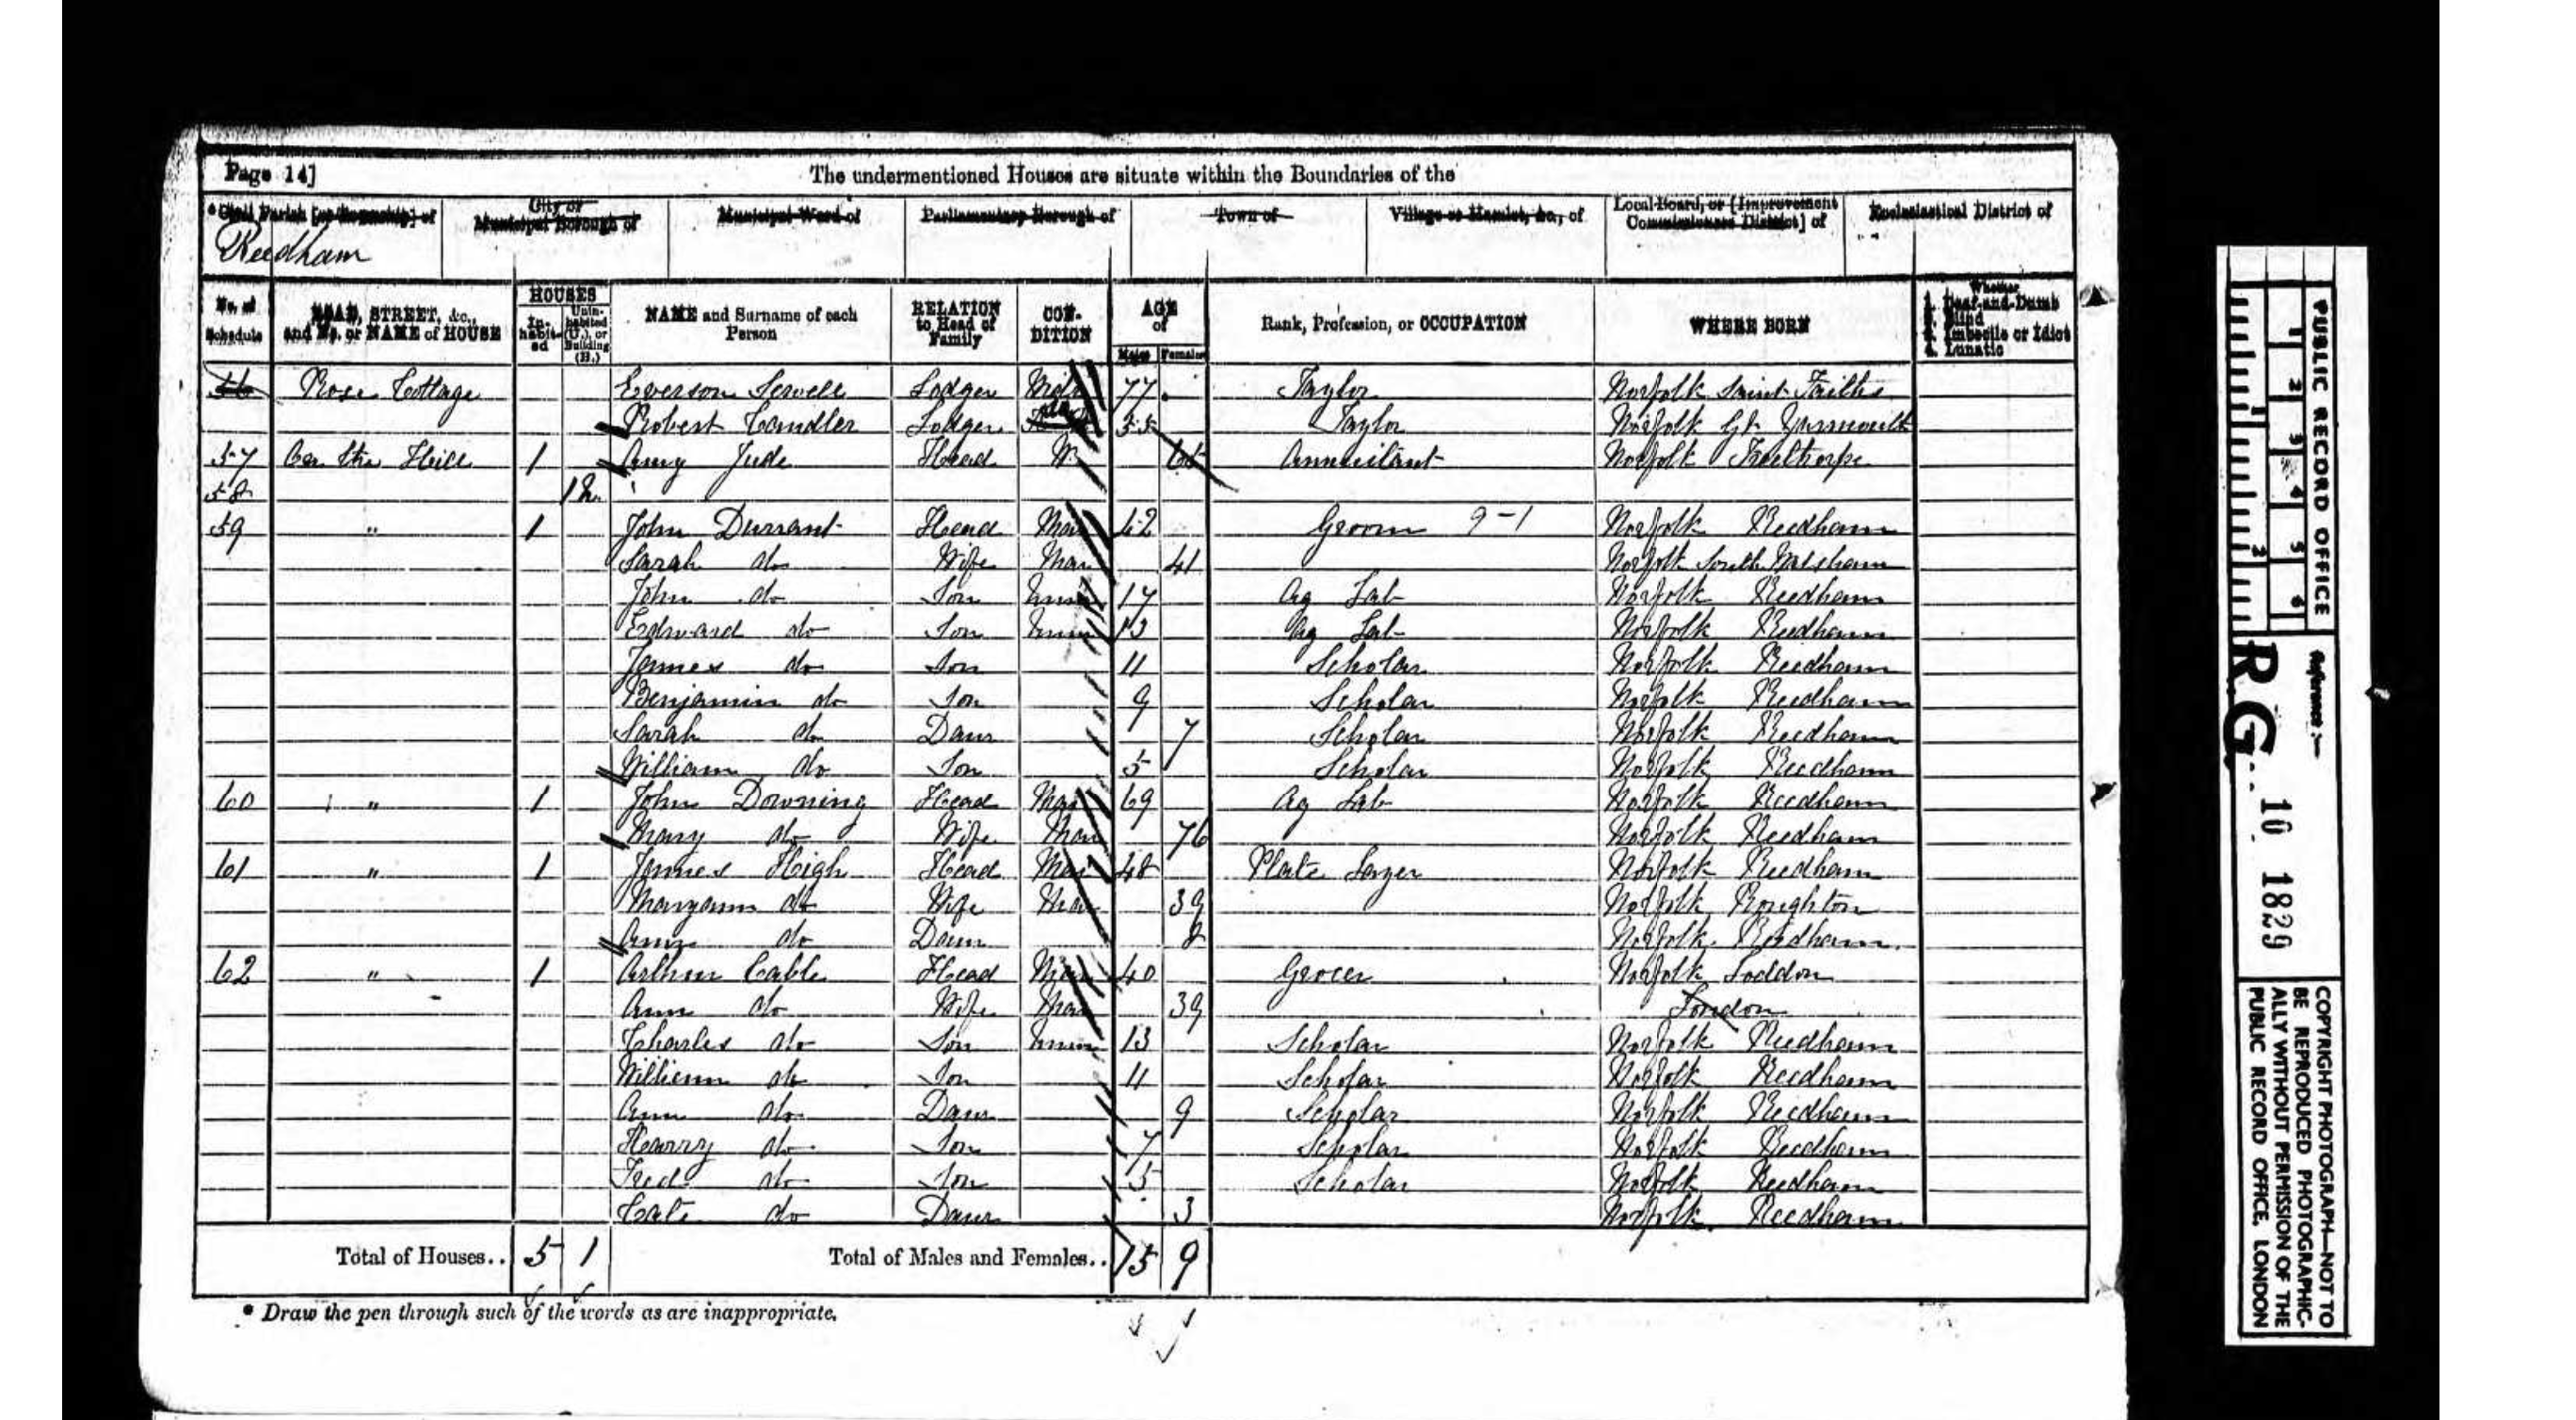 Page 14]
The undermentioned Houses are situate within the Boundaries of the
* Civil Parish [or Township] of
City or Municipal Borough of
Municipal Ward of
Parliamentary Borough of
Town of
Village or Hamlet, &c., of
Local Board, or [Improvement Commissioners District] of
Ecclesiastical District of
Reedham
No. of Schedule
ROAD, STREET, &c., and No. or NAME of HOUSE
HOUSES
In-habit-ed
Unin-habited (U.), or Building (B.)
NAME and Surname of each Person
RELATION to Head of Family
CON-DITION
AGE of
Males Females
Rank, Profession, or OCCUPATION
WHERE BORN
Whether
1. Deaf-and-Dumb
2. Blind
3. Imbecile or Idiot
4. Lunatic
56 Rose Cottage Everson Sewell Lodger 77 Taylor Norfolk Saint Faiths
Robert Candler Lodger 55 Taylor Norfolk Gt Yarmouth
57 On the Hill 1 Amy Jude Head W Annuitant Norfolk Freethorpe
58 1
59 " 1 John Durrant Head Mar 42 Groom 9-1 Norfolk Reedham
Sarah do Wife Mar 41 Norfolk South Walsham
John do Son Unm 17 Ag Lab Norfolk Reedham
Edward do Son Unm 13 Ag Lab Norfolk Reedham
James do Son 11 Scholar Norfolk Reedham
Benjamin do Son 9 Scholar Norfolk Reedham
Sarah do Daur 7 Scholar Norfolk Reedham
William do Son 5 Scholar Norfolk Reedham
60 " 1 John Downing Head Mar 69 Ag Lab Norfolk Reedham
Mary do Wife Mar 76 Norfolk Reedham
61 " 1 James High Head Mar 48 Plate Layer Norfolk Reedham
Maryann do Wife Mar 39 Norfolk Roughton
Amy do Daur Norfolk Reedham
62 " 1 Arthur Cable Head Mar 40 Grocer Norfolk Loddon
Ann do Wife Mar 39 London
Charles do Son Unm 13 Scholar Norfolk Reedham
William do Son 11 Scholar Norfolk Reedham
Ann do Daur 9 Scholar Norfolk Reedham
Hearry do Son 7 Scholar Norfolk Reedham
Fred do Son 5 Scholar Norfolk Reedham
Cate do Daur 3 Norfolk Reedham
Total of Houses.. 5 1 Total of Males and Females.. 15 9
* Draw the pen through such of the words as are inappropriate.
PUBLIC RECORD OFFICE
1 2 3 4 5 6
Reference :—
R.G. 10 1829
COPYRIGHT PHOTOGRAPH—NOT TO
BE REPRODUCED PHOTOGRAPHIC-
ALLY WITHOUT PERMISSION OF THE
PUBLIC RECORD OFFICE, LONDON